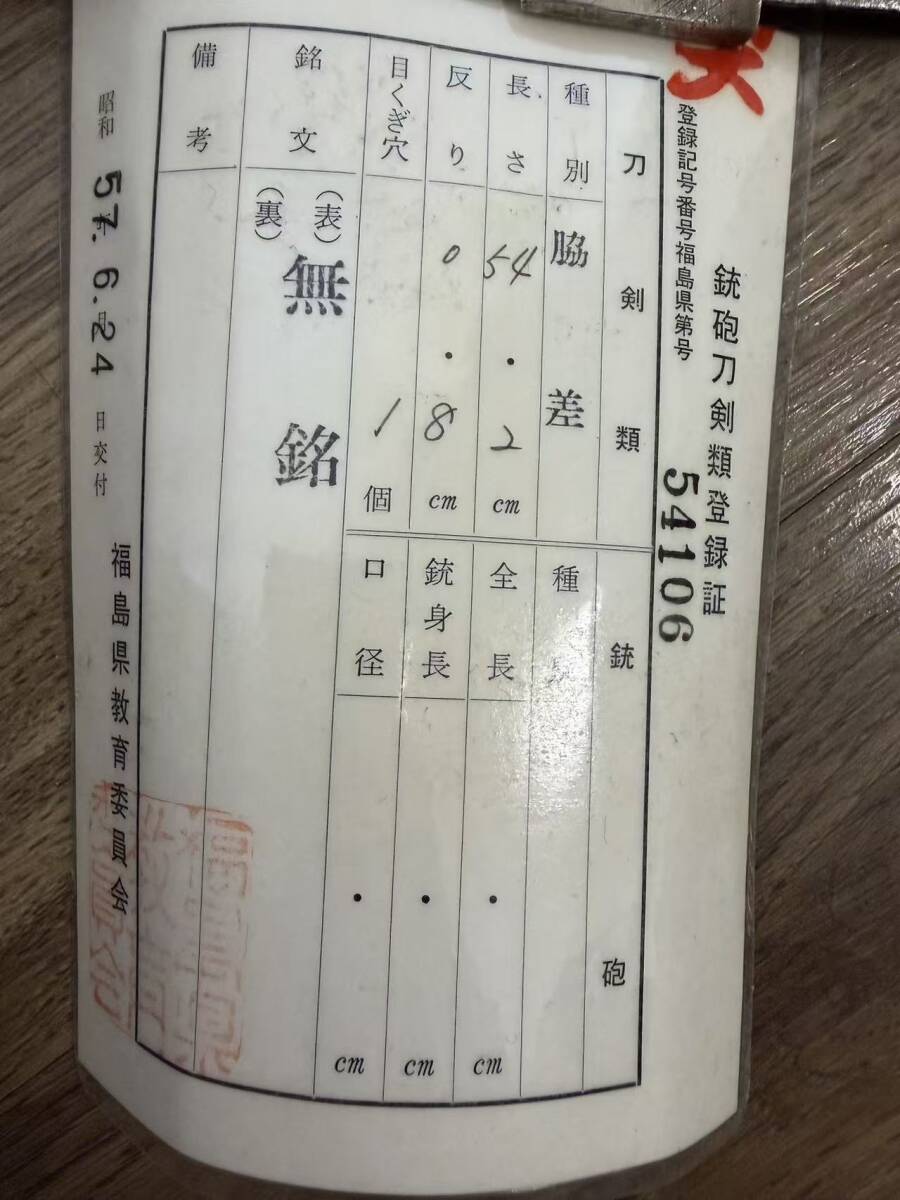 銃砲刀剣類登録証
登録記号番号福島県第号
54106
刀剣類
種別 脇差
長さ 54.2cm
反り 0.8cm
目くぎ穴 1個
銘文 (表) 無銘
(裏)
備考
銃砲
種別
全長 .cm
銃身長 .cm
口径 .cm
昭和57.6.24日交付
福島県教育委員会